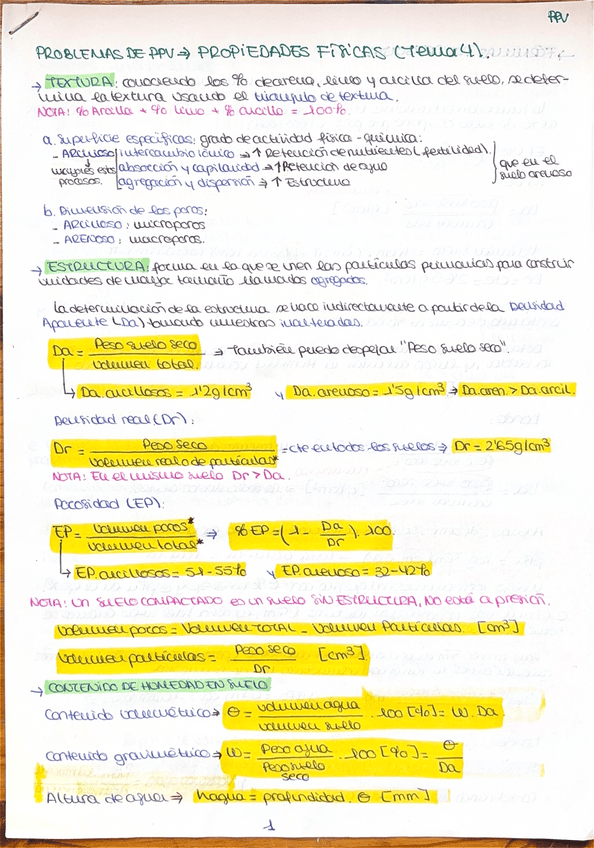 PPV
PROBLEMAS DE PPV → PROPIEDADES FÍSICAS (Tema 4).
→ TEXTURA: conociendo los % de arena, limo y arcilla del suelo, se deter-
mina la textura usando el triángulo de textura.
NOTA: % Arcilla + % limo + % arcilla = 100%.
a. Superficie específicas: grado de actividad física-química:
- ARCILLOSO intercambio iónico → ↑ Retención de nutrientes (fertilidad).
mayores estos procesos. absorción y capilaridad → ↑ Retención de agua
agregación y dispersión → ↑ Estructura
que en el suelo arenoso
b. Dimensión de los poros:
- ARCILLOSO: microporos
- ARENOSO: macroporos.
→ ESTRUCTURA: forma en la que se unen las partículas primarias para construir
unidades de mayor tamaño llamados agregados.
La determinación de la estructura se hace indirectamente a partir de la Densidad
Aparente (Da) tomando muestras inalteradas.
Da = Peso suelo seco / Volumen total. → También puedo despejar "Peso suelo seco".
Da. arcillosos = 1'2g/cm³ y Da. arenoso = 1'5g/cm³ → Da.aren. > Da.arcil.
Densidad real (Dr):
Dr = Peso seco / Volumen real o de partículas* = cte en todos los suelos → Dr = 2'65g/cm³
NOTA: En el mismo suelo Dr > Da.
Porosidad (EP):
EP = Volumen poros* / Volumen total* → % EP = (1 - Da / Dr) . 100.
EP. arcillosos = 51-55% y EP. arenoso = 32-42%
NOTA: UN SUELO COMPACTADO es un suelo SIN ESTRUCTURA, NO está a presión.
Volumen poros = Volumen TOTAL - Volumen Partículas. [cm³]
Volumen partículas = Peso seco / Dr [cm³]
→ CONTENIDO DE HUMEDAD EN SUELO
Contenido volumétrico → θ = volumen agua / volumen suelo . 100 [%] = W. Da
Contenido gravimétrico → W = Peso agua / Peso suelo seco . 100 [%] = θ / Da
Altura de agua → hagua = profundidad . θ [mm]
1